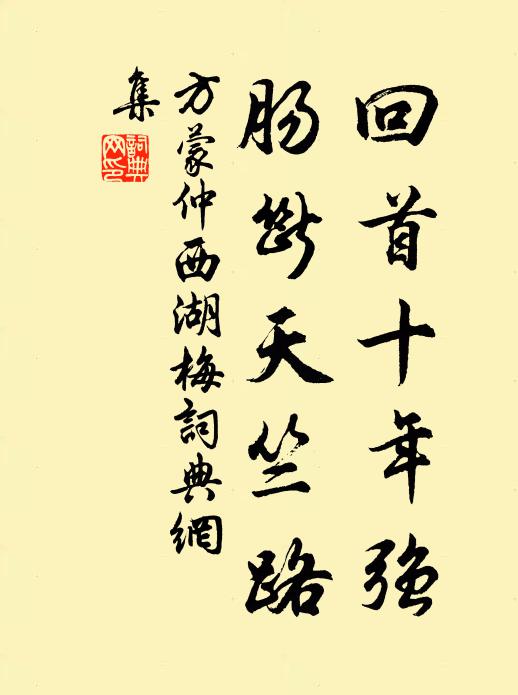 回首十年强
肠断天竺路
方蒙仲西湖梅詞典網
集
詞典网印